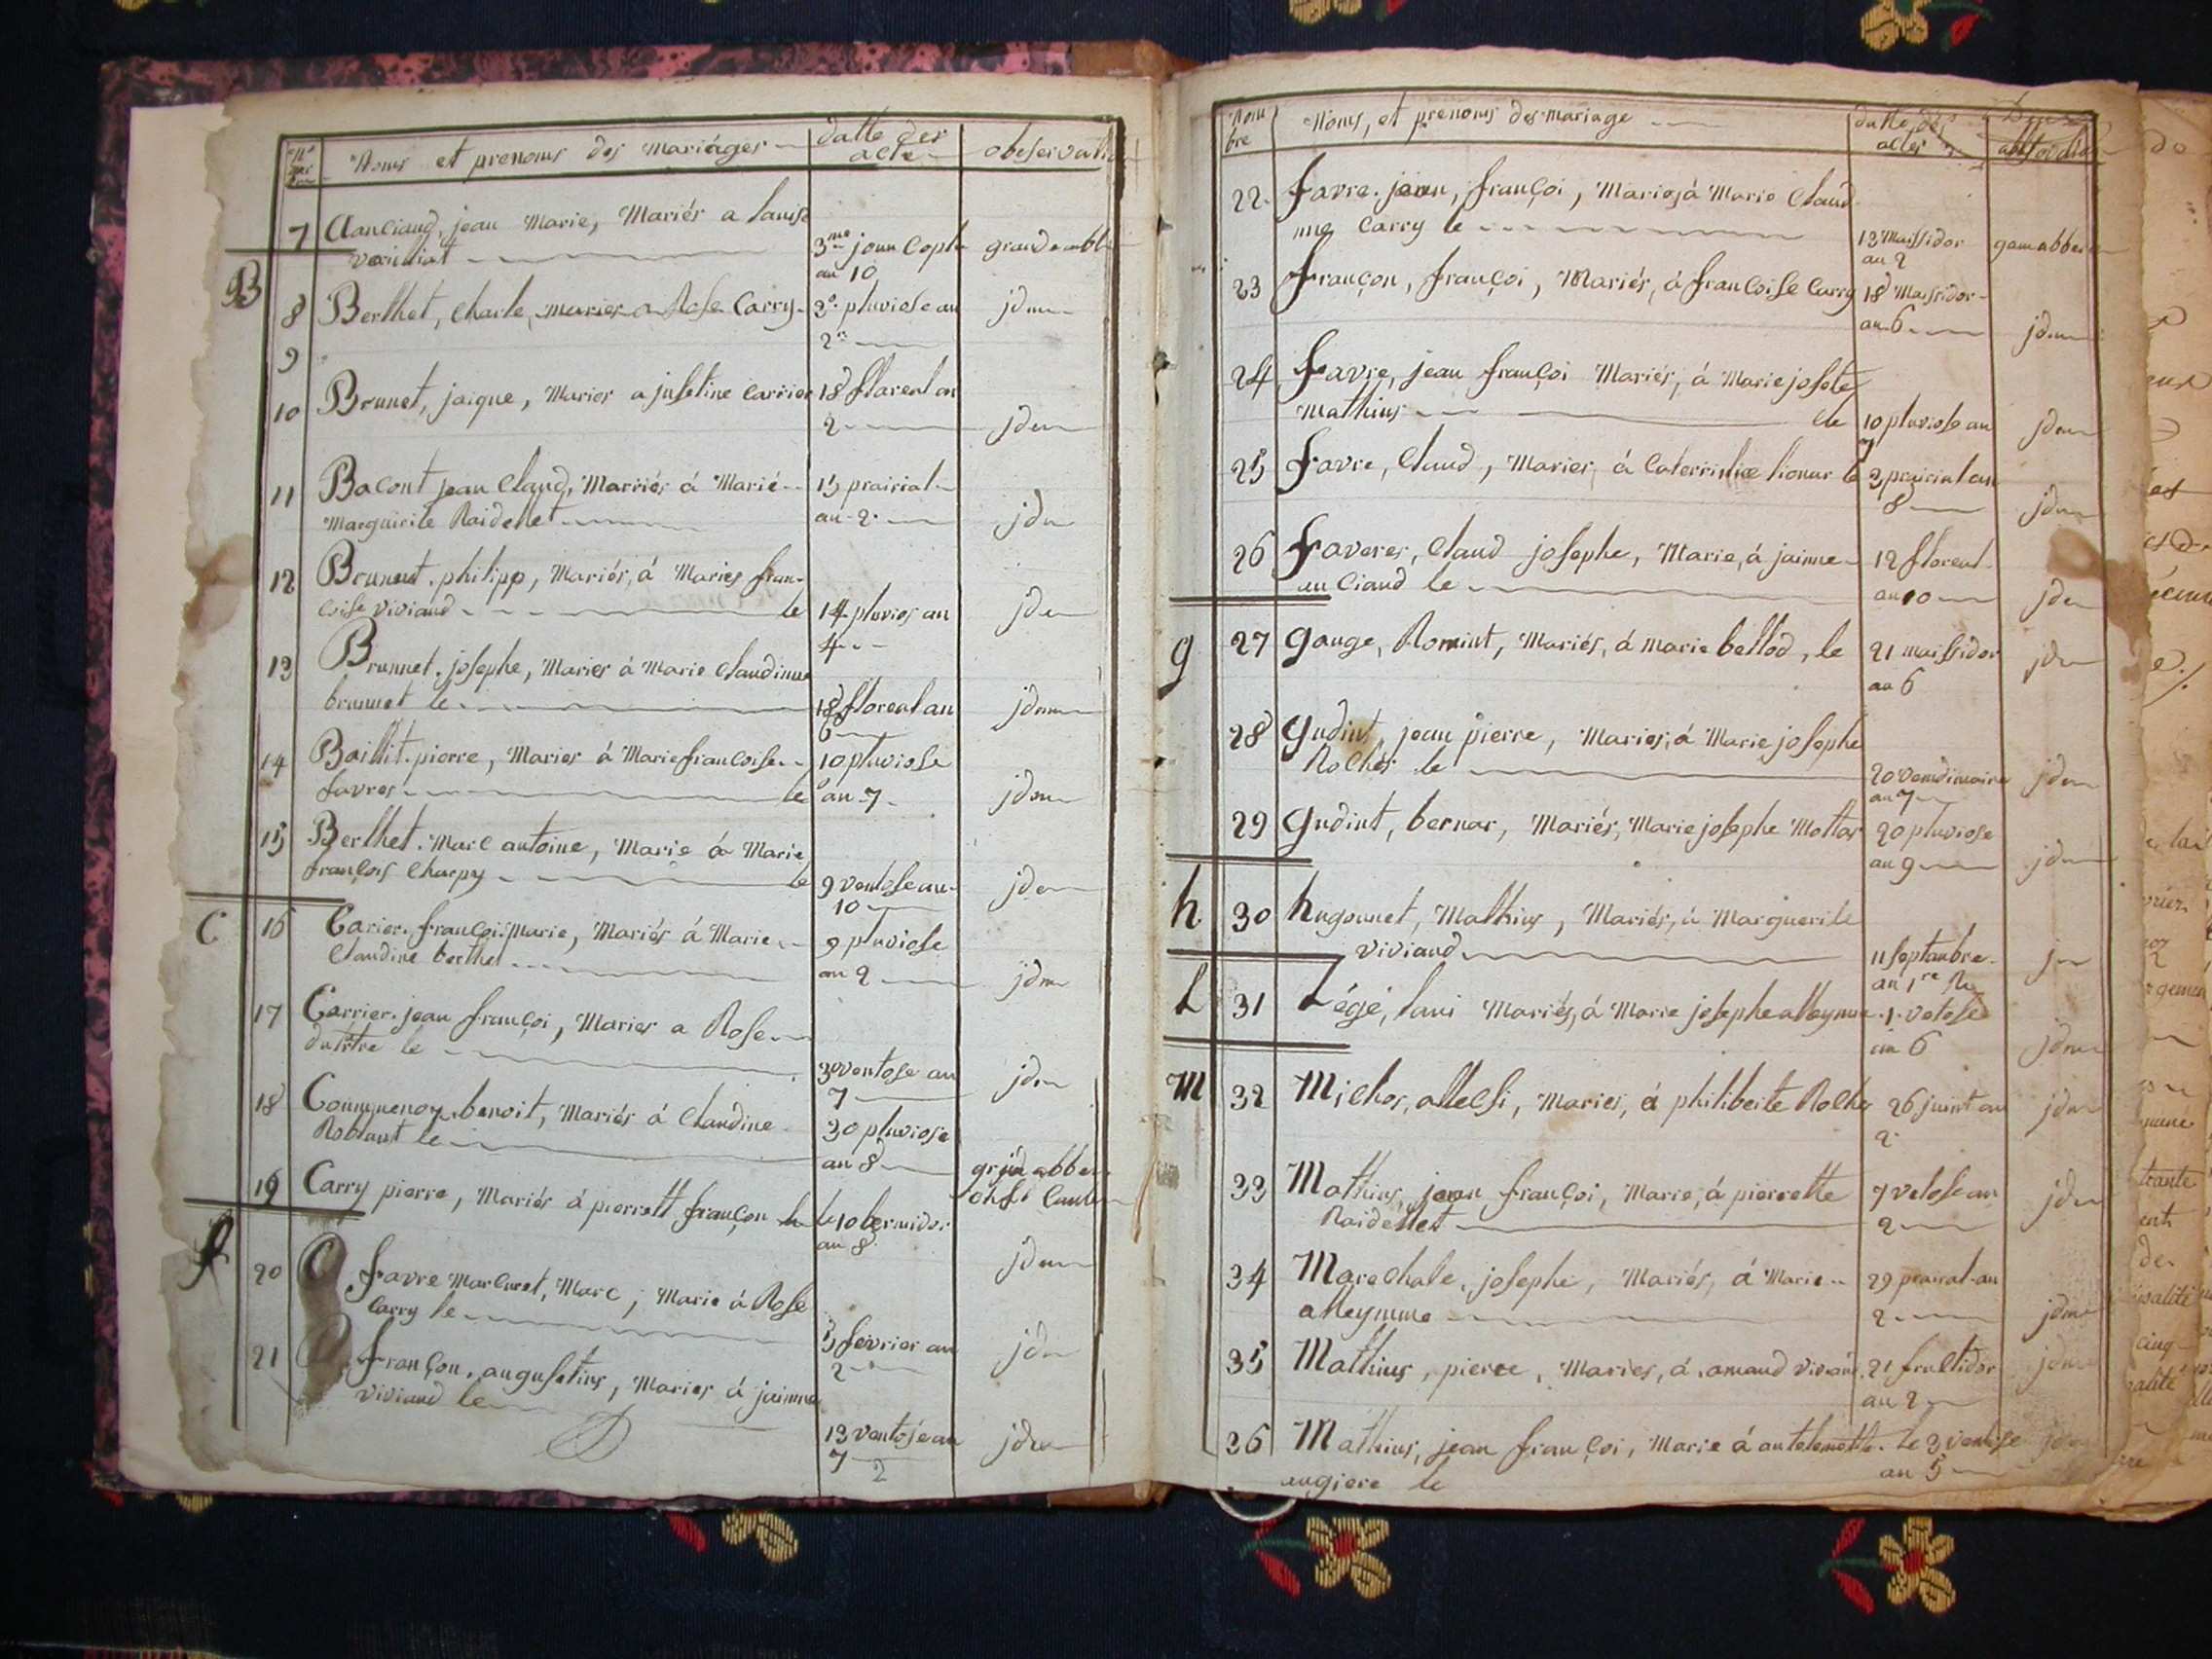 Noms et prenoms des mariages datte des acte observation
7 Anciand, jean Marie, Mariés a louise
3me jour Cople grande abb
an 10
B
8 Berthet, Charle, marier a Rose Carry 3e pluviose an jdem
2
9
10 Brunet, jaique, Marier a justine Carrier 18 flareal an
2 jdem
11 Bacont jean Claud, Marriés á Marié 15 prairial
Marguirite Raidellet an 2 jdem
12 Brunnet philipp, Mariés, á Maries fran-
coise viviand le 14 pluvios an jdem
4
13 Brunnet josephe, Maries á Marie Claudinne
brunnet le 18 floreal an jdem
6
14 Baillit pierre, Maries á Marie francoise 10 pluviose
favres le an 7 jdem
15 Berthet Marc antoine, Marie á Marie
françois Charpy le 9 ventose an jdem
10
C 16 Carier françoi Marie, Mariés á Marie 9 pluviose
Claudine berthet an 2 jdem
17 Carrier jean françoi, Maries a Rose
le 30 ventose an jdem
7
18 benoit, Mariés á Claudine 30 pluviose
Roblant le an 8
19 Carry pierre, Mariés á pierrett françon le le 10 termidor
an 8 jdem
f
20 favre Marc, Marie á Rose
Carry le 5 fevrier an jdem
2
21 françon augustins, Maries á jainne
viviand le 13 ventose an jdem
7
2
Nom
bre Noms, et prenoms des mariage datte des
actes
22 favre jean, françoi, Maries á Marie Claud
nne Carry le 13 Maissidor
an 2
23 françon, françoi, Mariés, á francoise Carry 18 Massidor
an 6 jdem
24 favre, jean françoi Mariés, á Marie josete
mathius le 10 pluviose an jdem
7
25 favre, Claud, Maries, á Caterrinne lionar le 3 prairial an
8 jdem
26 faveres, Claud josephe, Marie, á jainne 12 floreal
an Ciand le an 10 jdem
g 27 gauge, Romint, Mariés, á marie bellod, le 21 maissidor jdem
an 6
28 gudint, jean pierre, Maries, á Marie josephe
Rolhes le 20 vendimaire jdem
an 7
29 gudint, bernar, Mariés, Marie josephe Mottas 20 pluviose
an 9 jdem
h 30 hugonnet, Mathius, Mariés, á Marguerite
viviand 11 septanbre
an 1re R
L 31 Légé, Loui Mariés, á Marie josephe alleynne 1 vetose
an 6 jdem
M 32 Milhos, allelsi, Maries, á philiberte Rolhe 26 juint an jdem
2
33 Mathius, jean françoi, Marie, á pierrette 7 vetose an
Raidellet 2 jdem
34 Marechale, josephe, Mariés, á Marie 29 prairal an
alleynnne 2 jdem
35 Mathius, pierre, Maries, á amand vivian 21 fructidor jdem
an 2
36 Mathius, jean françoi, Marie á antelmette le 3 ventose
augiere le an 5